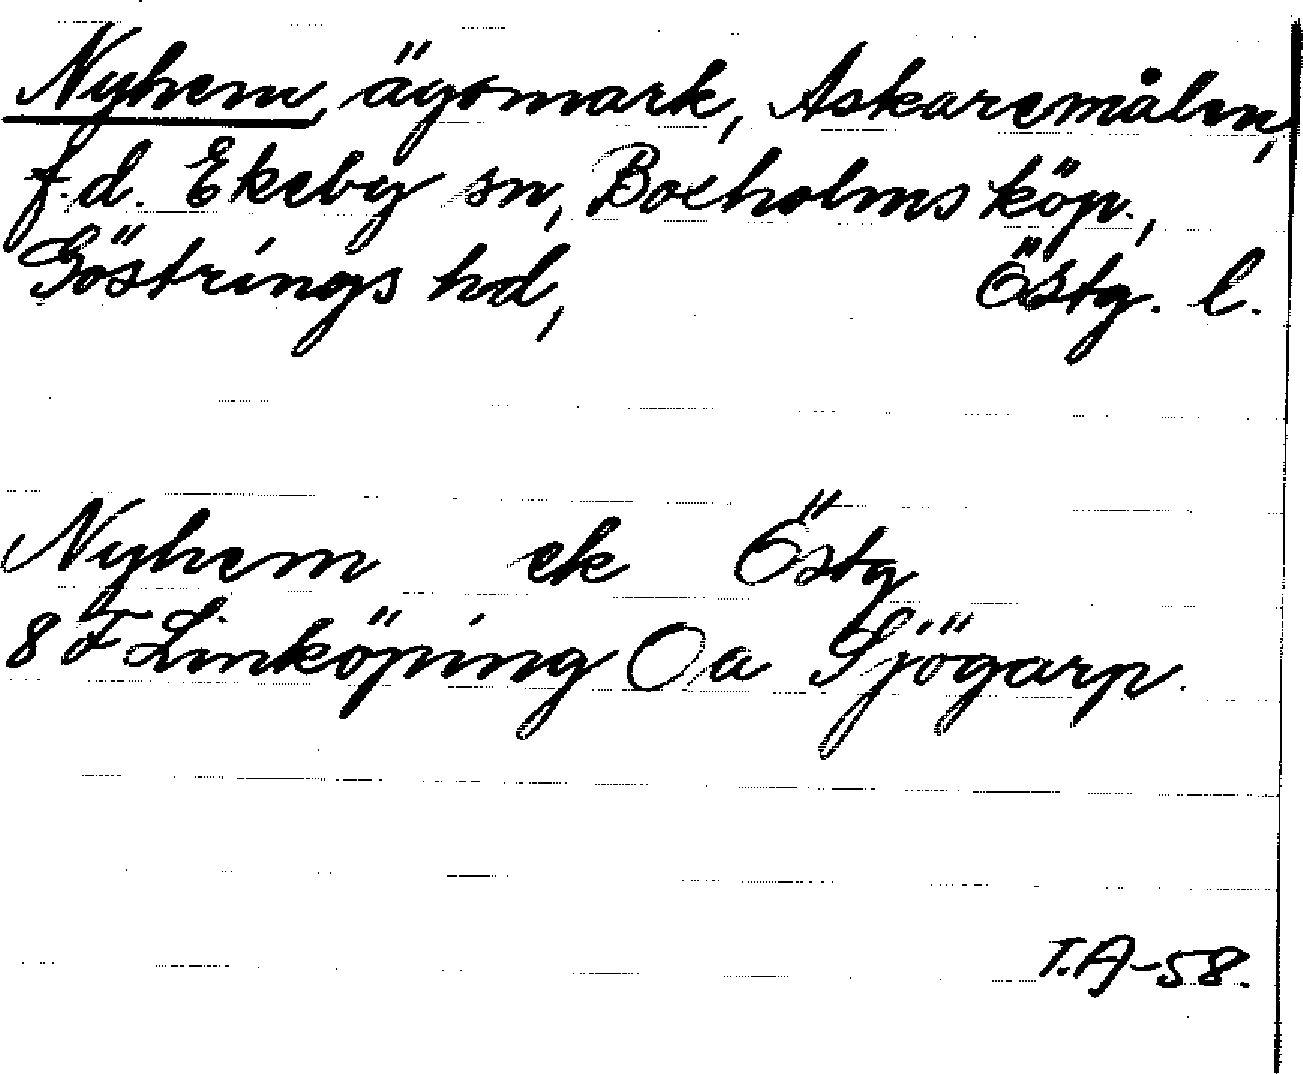 Nyhem, ägomark, Askaremålen,
f.d. Ekeby sn, Boxholms köp.,
Göstrings hd, Östg. l.
Nyhem ek Östg
8 F Linköping Oa Sjögarp.
T.A-58.